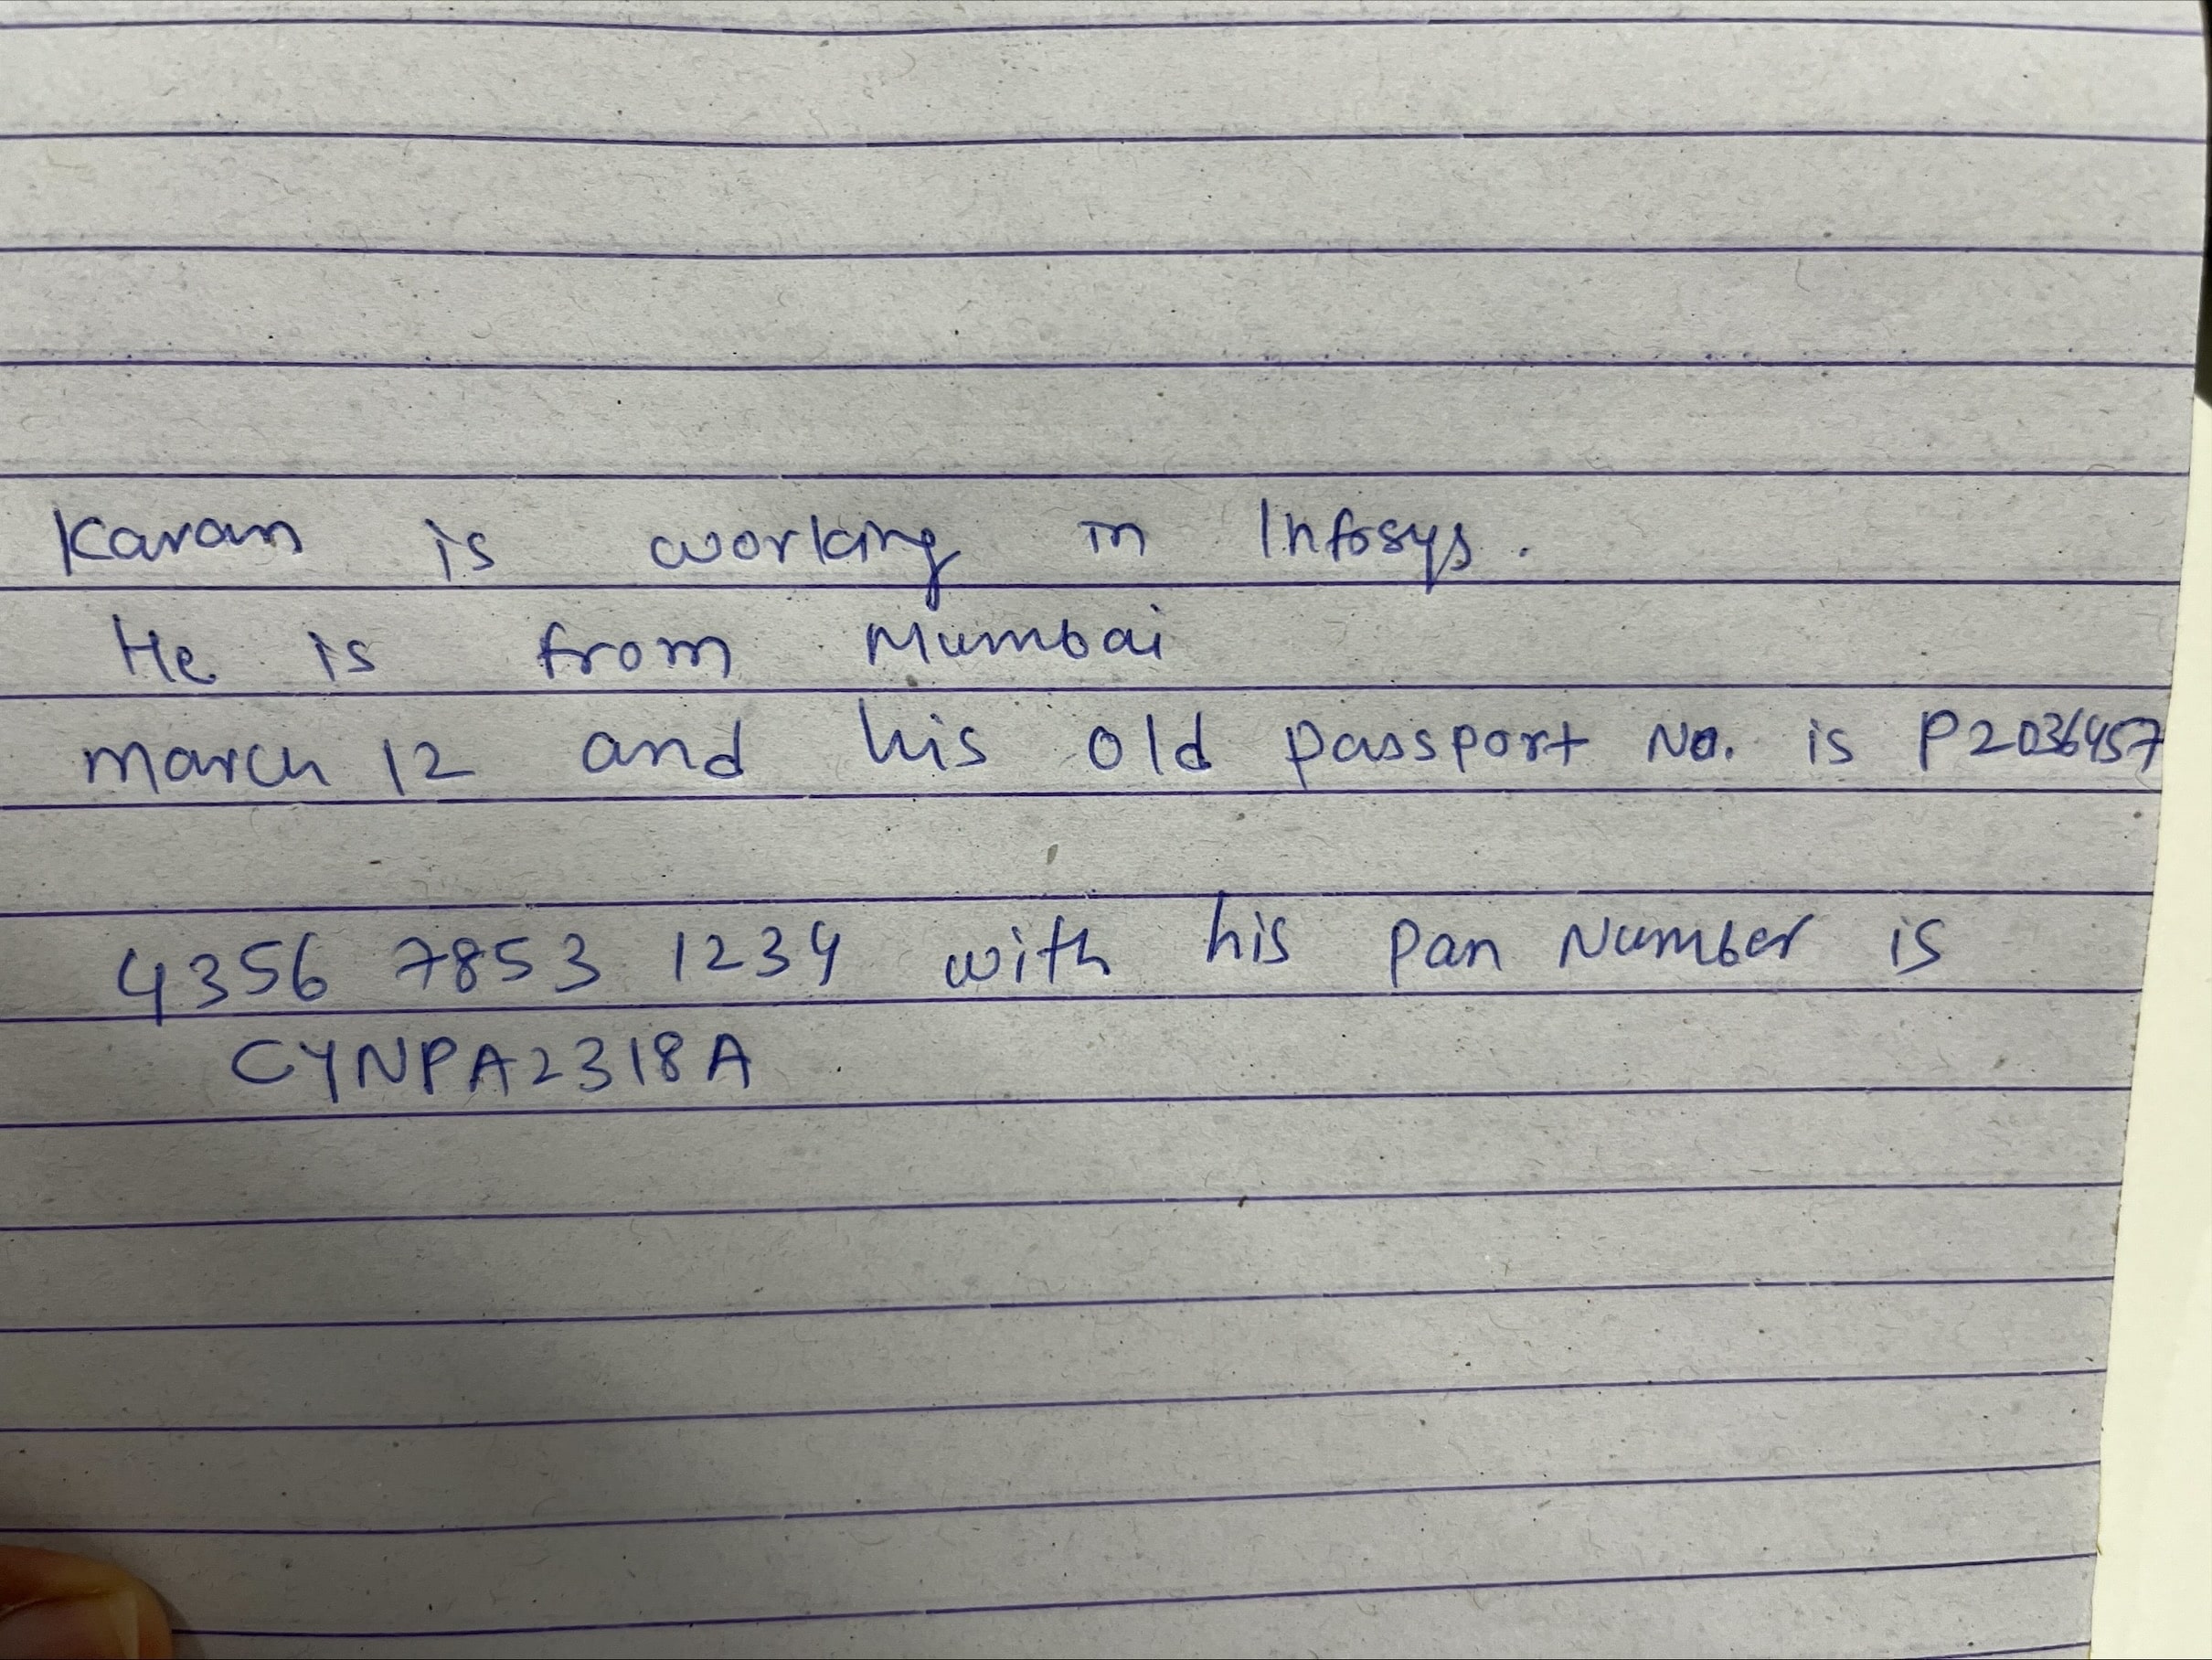 Karan is working in Infosys.
He is from Mumbai
march 12 and his old passport No. is P2036457
4356 7853 1234 with his Pan Number is
CYNPA2318A